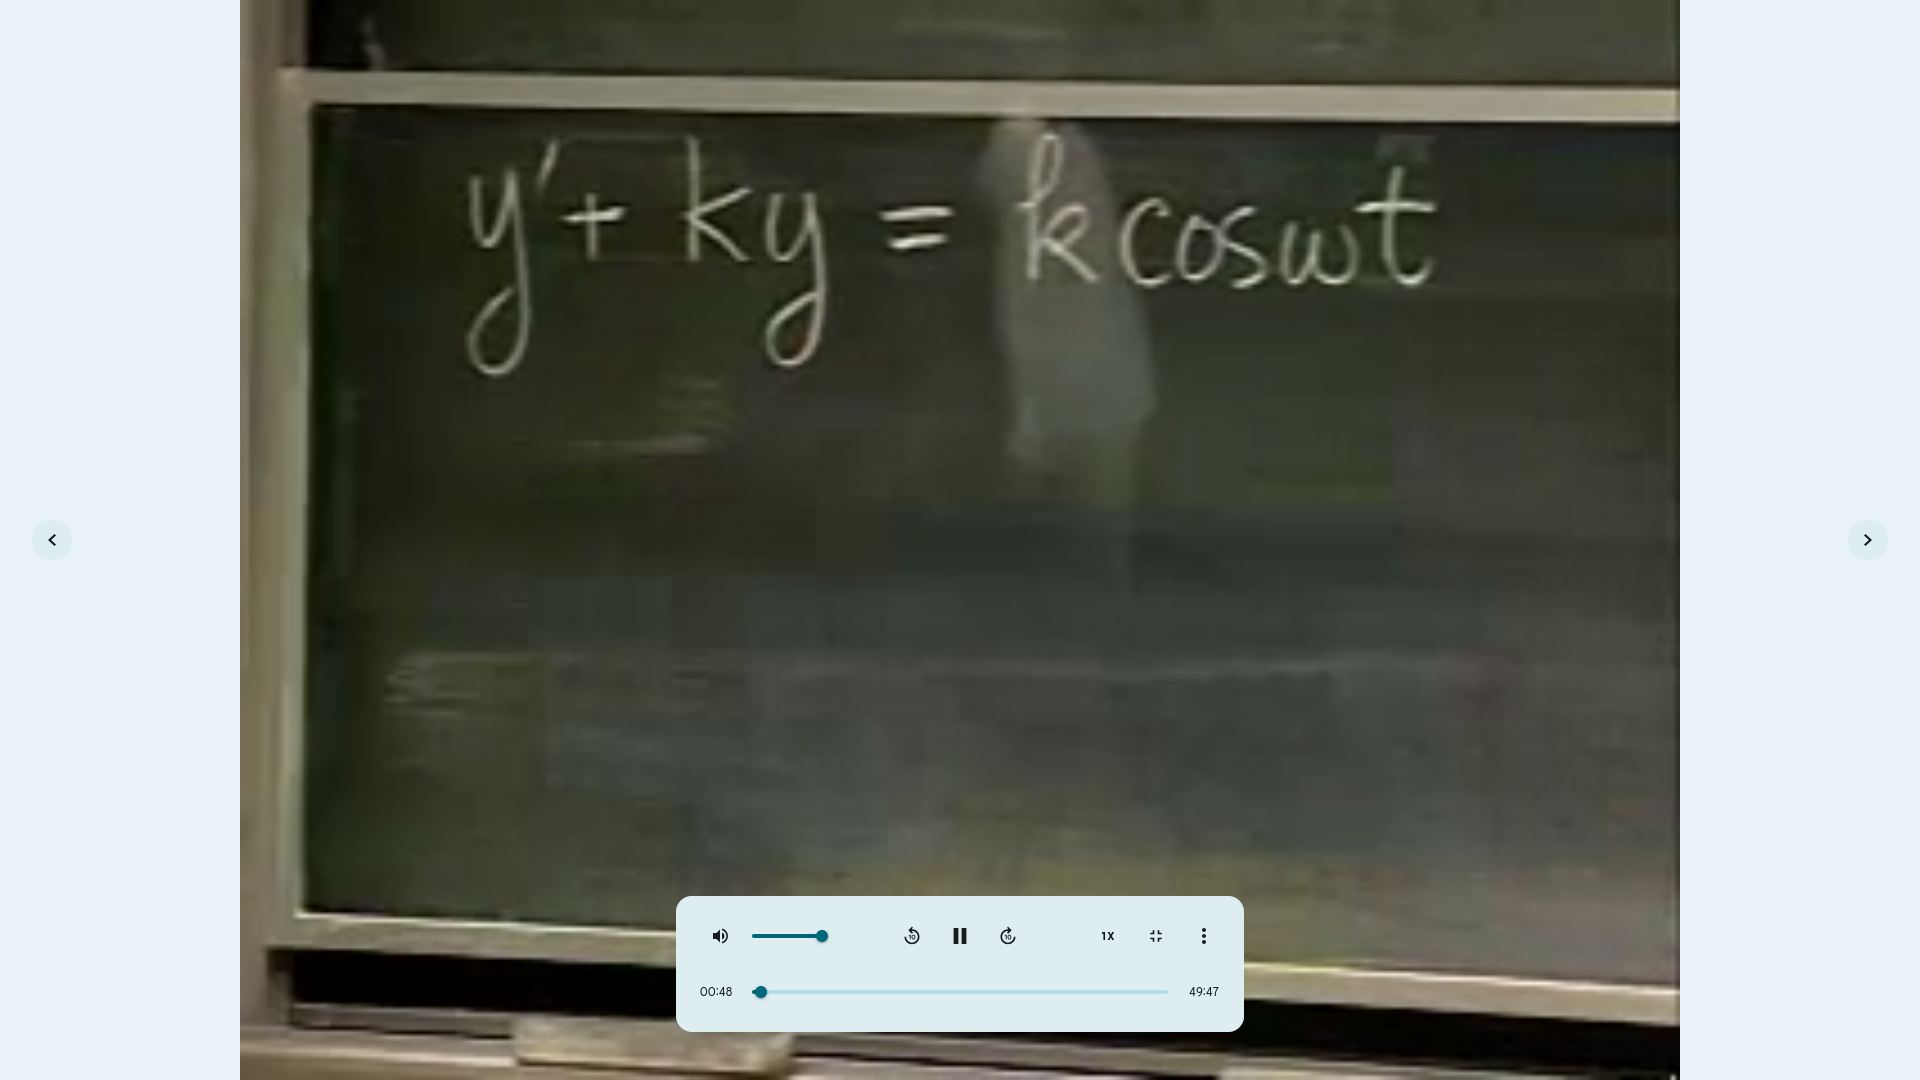 y' + ky = k cos ωt
10
10
1X
00:48
49:47